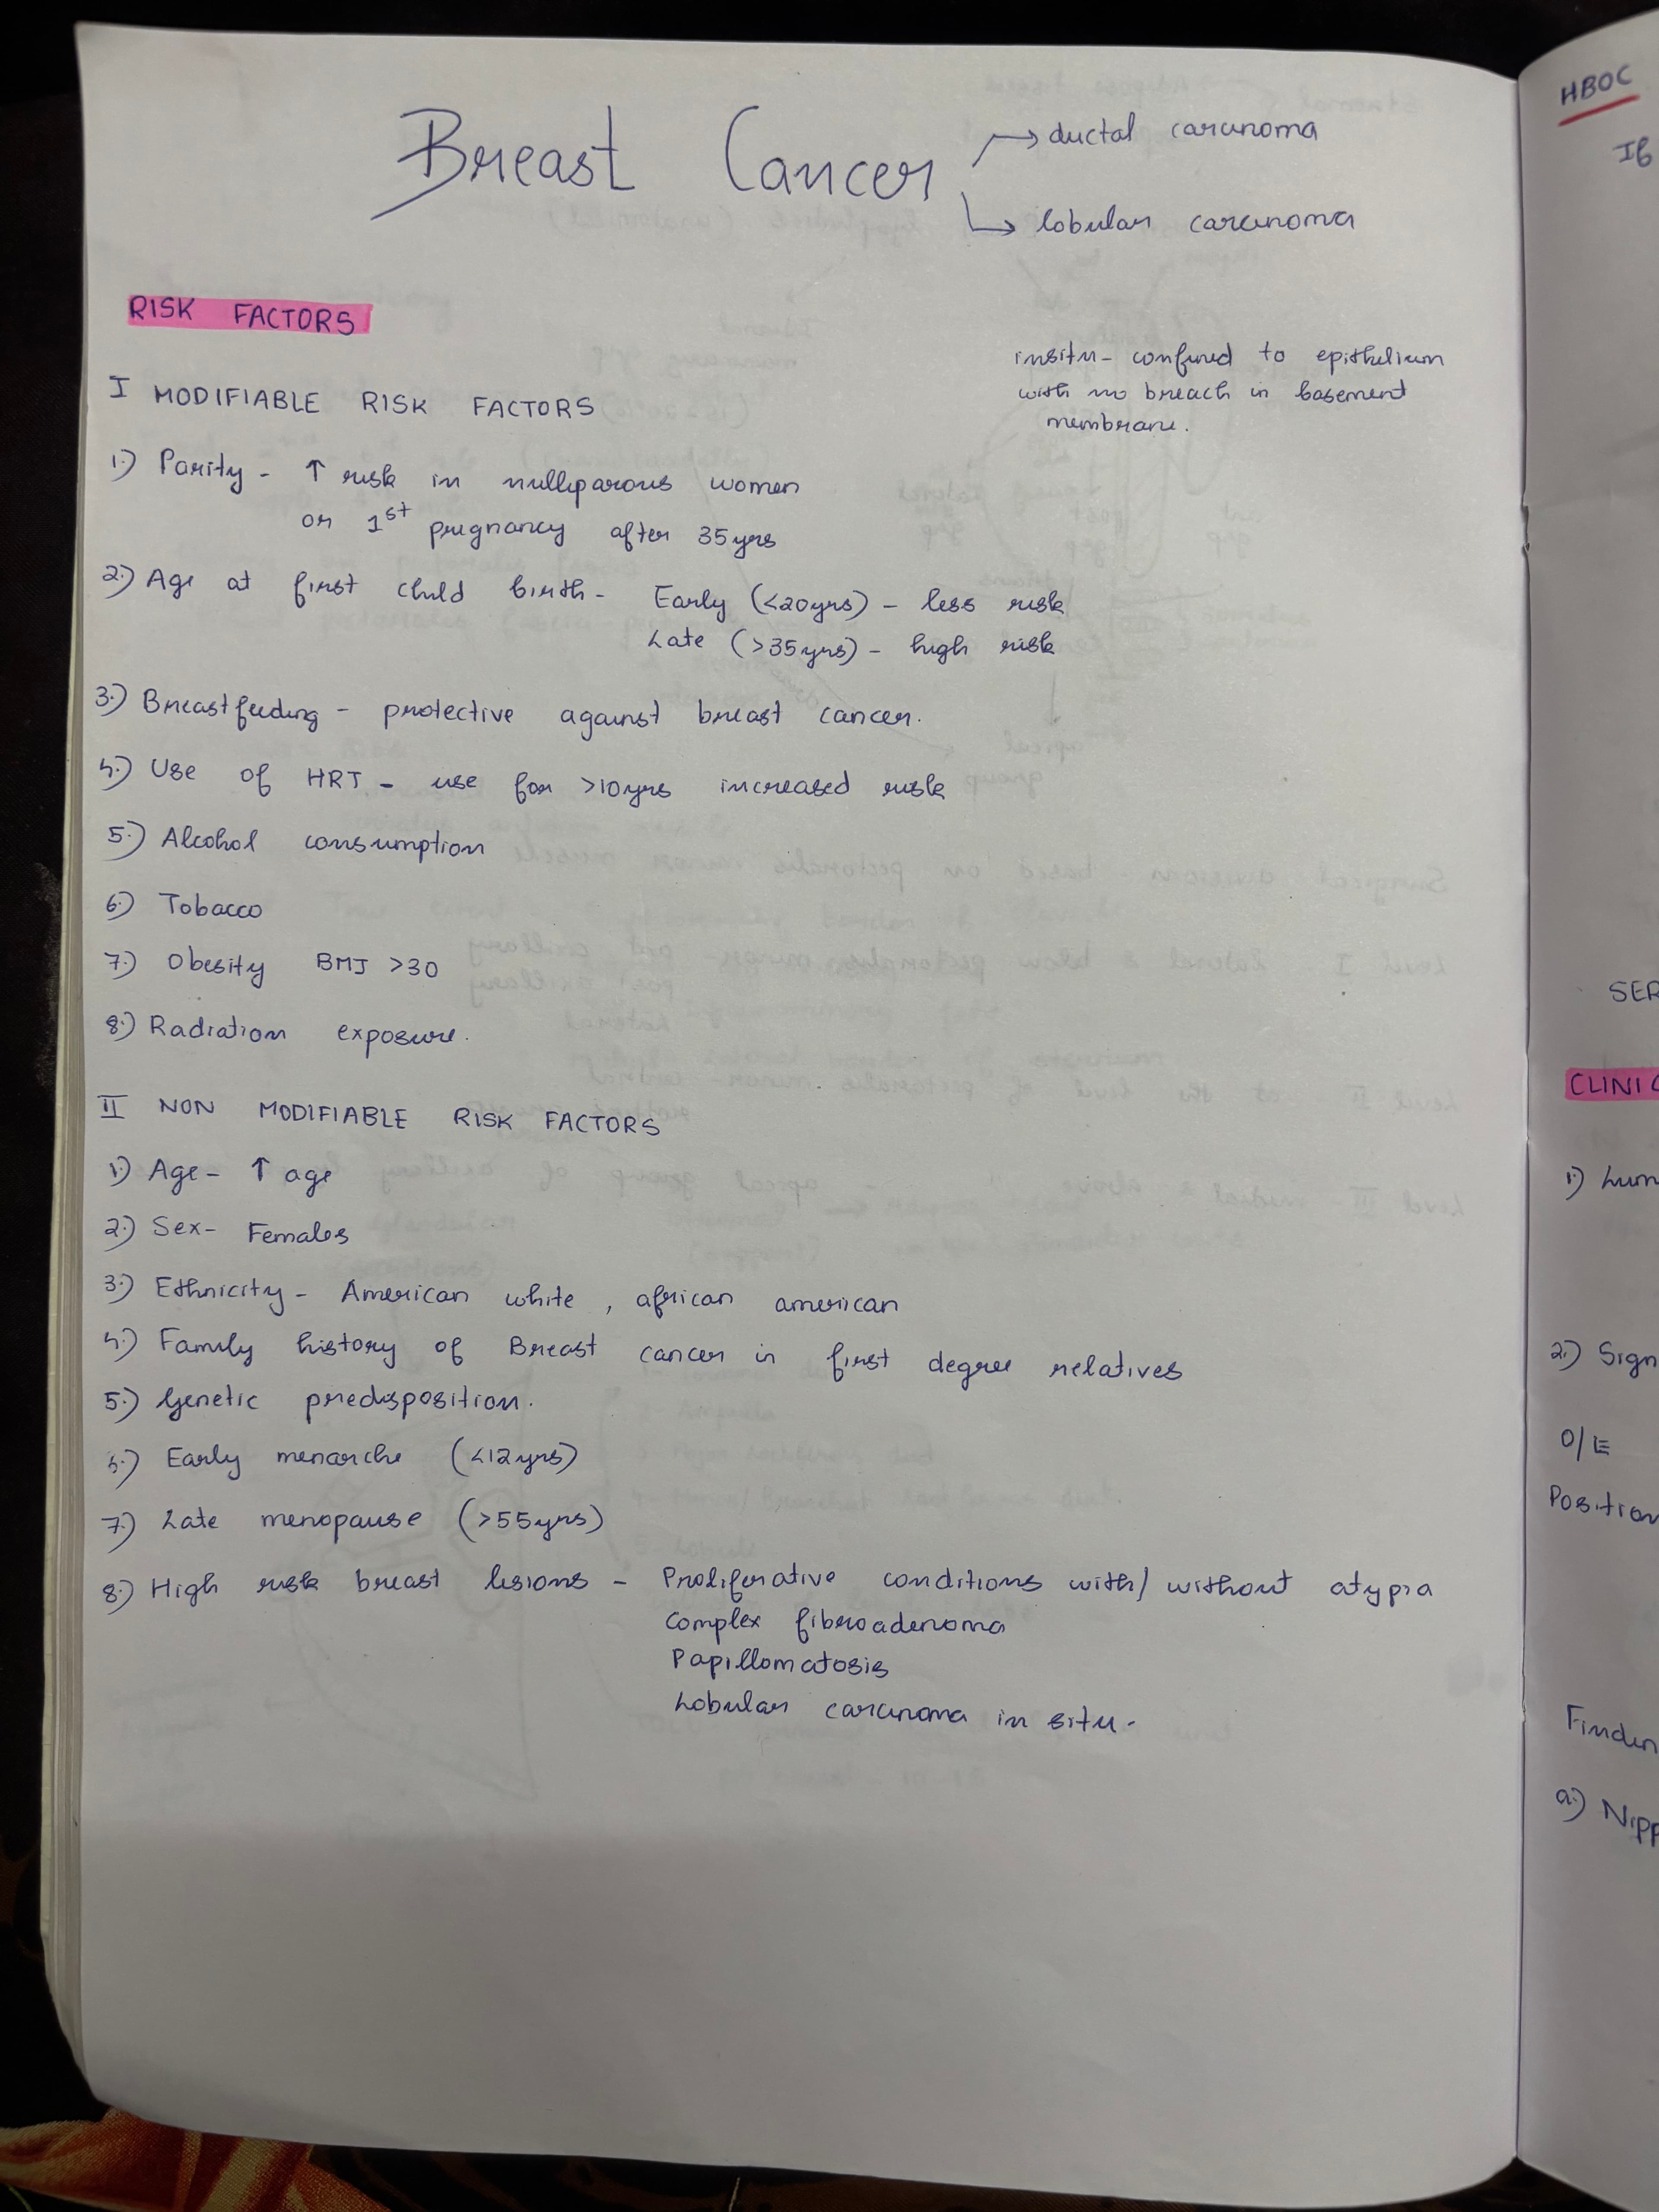 Breast Cancer → ductal carcinoma
↳ lobular carcinoma
RISK FACTORS
insitu - confined to epithelium
with no breach in basement
membrane.
I MODIFIABLE RISK FACTORS
1.) Parity - ↑ risk in nulliparous women
or 1st pregnancy after 35yrs
2.) Age at first child birth - Early (<20yrs) - less risk
Late (>35yrs) - high risk
3.) Breastfeeding - protective against breast cancer.
4.) Use of HRT - use for >10yrs increased risk
5.) Alcohol consumption
6.) Tobacco
7.) Obesity BMI >30
8.) Radiation exposure.
II NON MODIFIABLE RISK FACTORS
1.) Age - ↑ age
2.) Sex - Females
3.) Ethnicity - American white, african american
4.) Family history of Breast cancer in first degree relatives
5.) Genetic predisposition.
6.) Early menarche (<12yrs)
7.) Late menopause (>55yrs)
8.) High risk breast lesions - Proliferative conditions with/without atypia
Complex fibroadenoma
Papillomatosis
Lobular carcinoma in situ.
HBOC
If
SER
CLINIC
1.) Lum
2.) Sign
O/E
Position
Findin
a.) Nipp